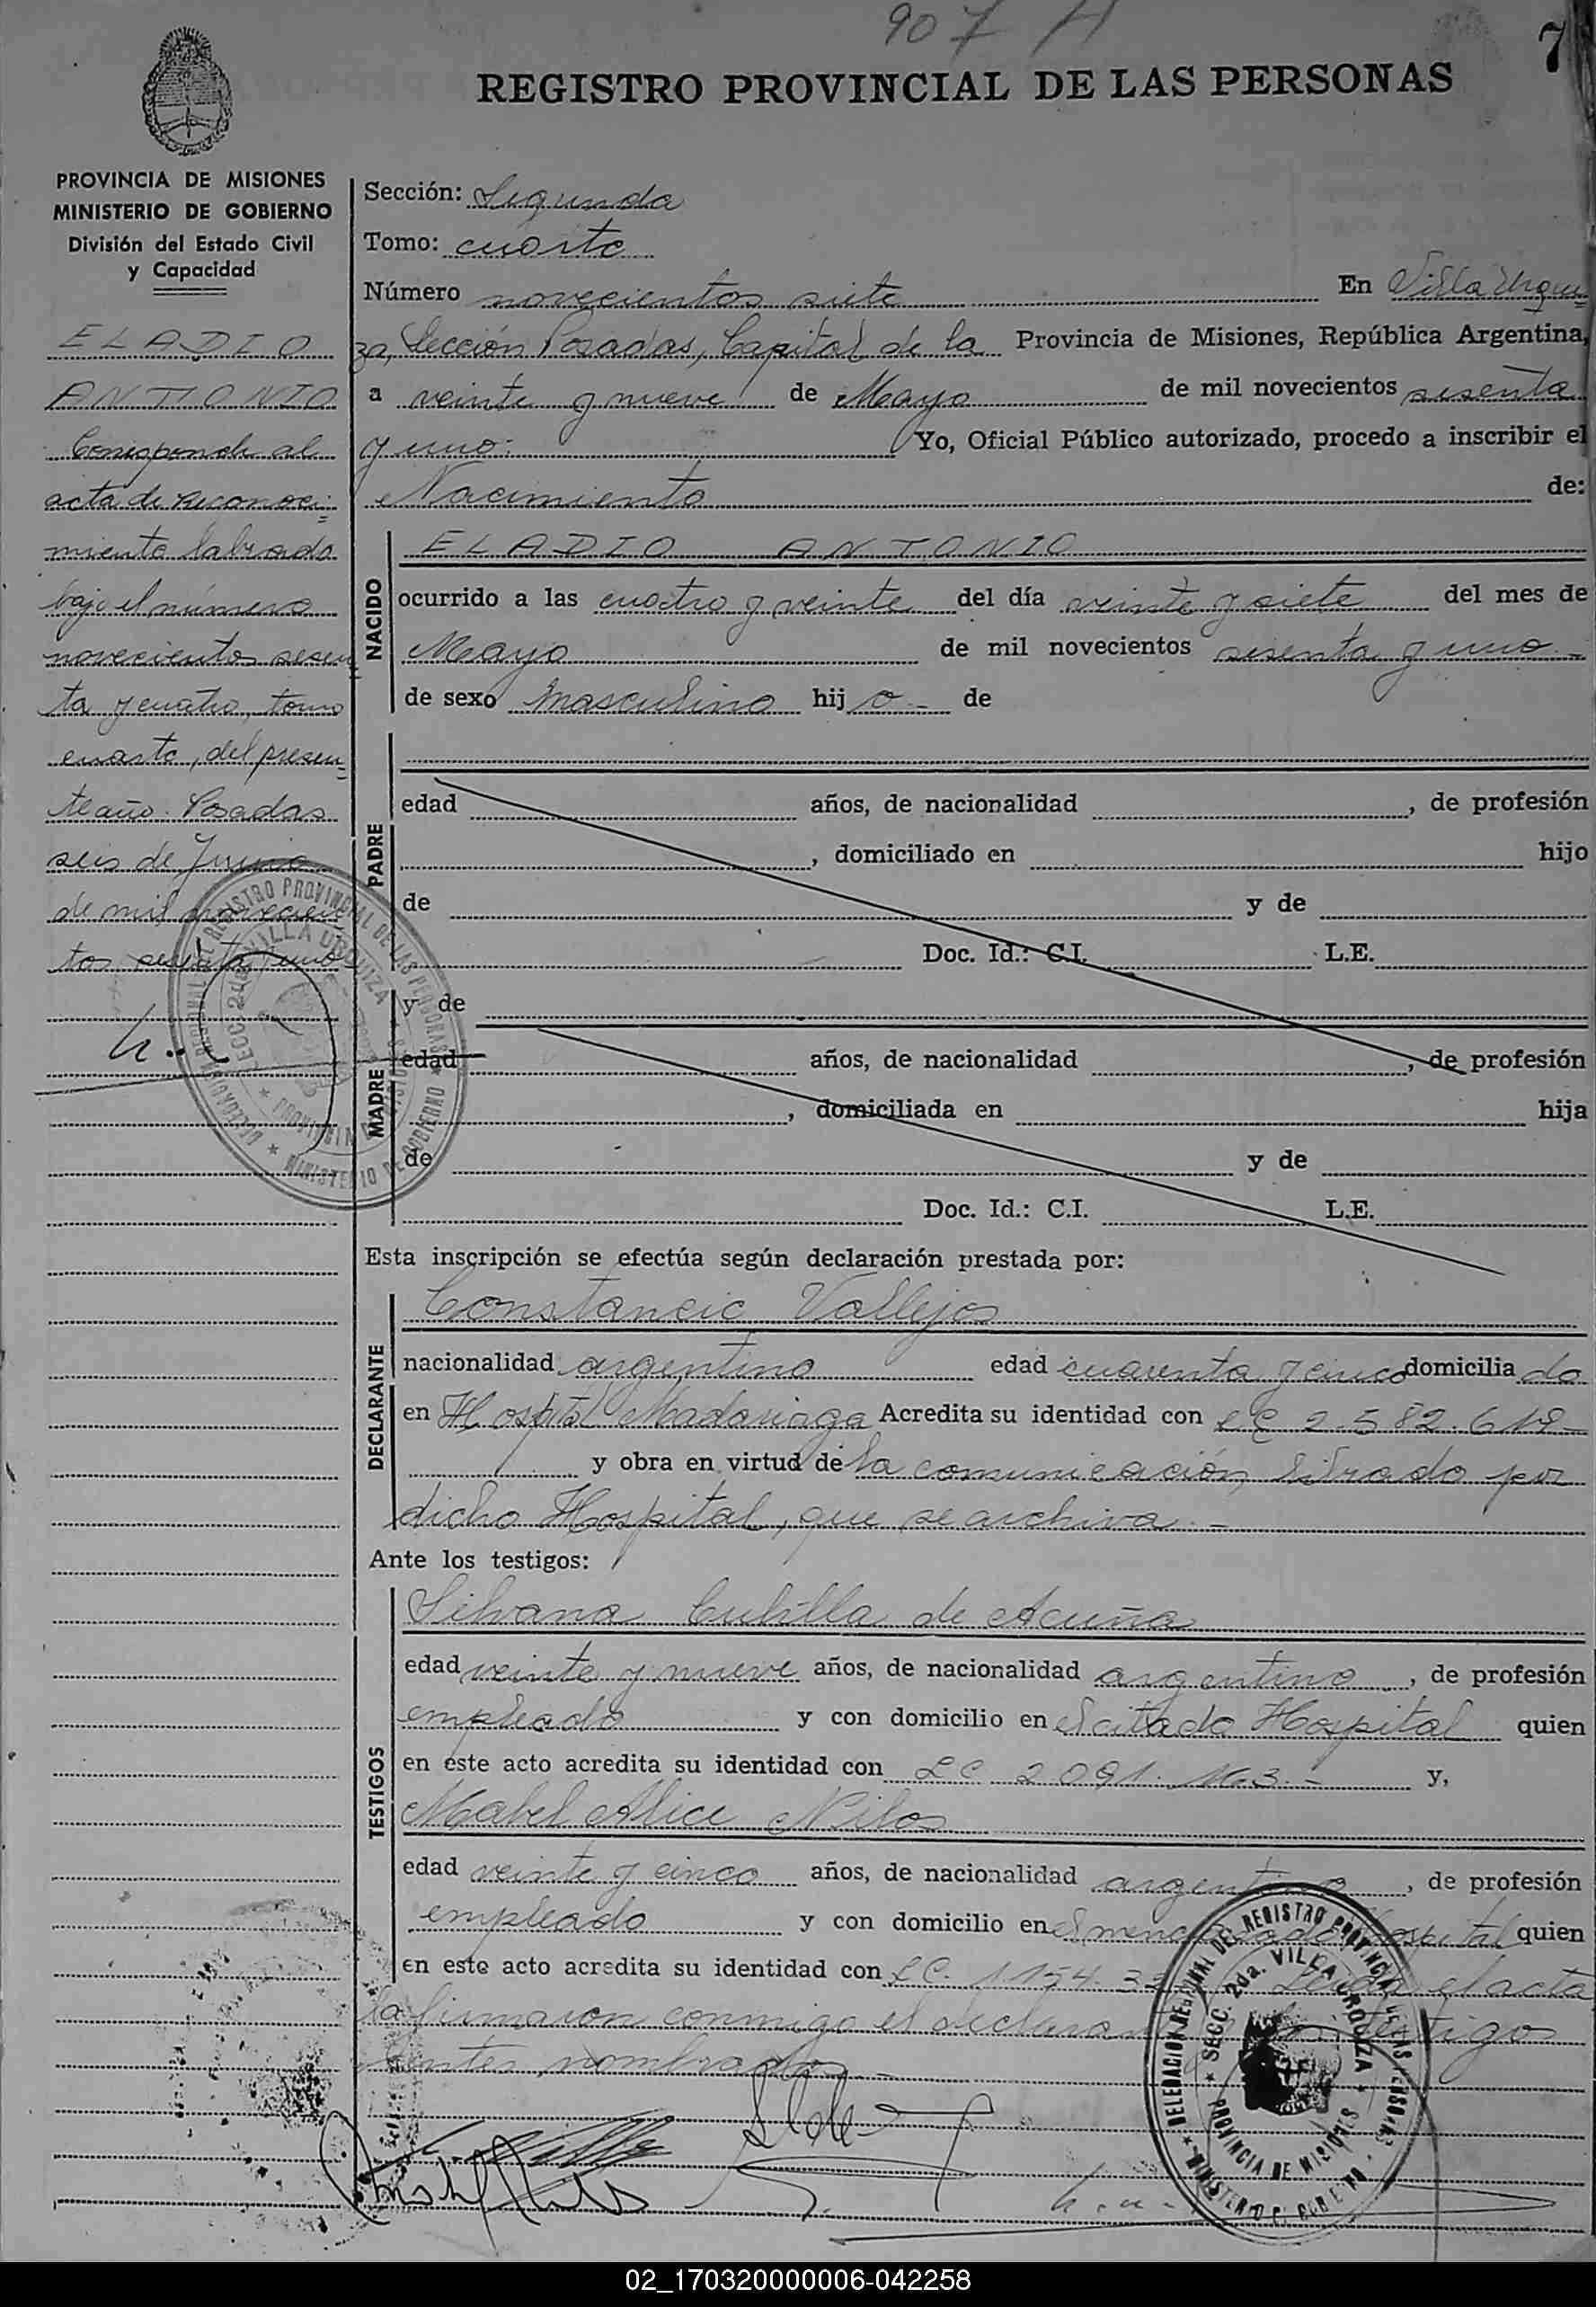 907 H
7
REGISTRO PROVINCIAL DE LAS PERSONAS
PROVINCIA DE MISIONES
MINISTERIO DE GOBIERNO
División del Estado Civil
y Capacidad
ELADIO
ANTONIO
Corresponde al
acta de reconoci-
miento labrada
bajo el número
novecientos sesen-
ta y cuatro, tomo
cuarto, del presen-
te año. Posadas
seis de Junio
de mil novecien-
tos sesenta y uno
Sección: Segunda
Tomo: cuarto
Número novecientos siete En Villa Urqui-
za, Sección Posadas, Capital de la Provincia de Misiones, República Argentina,
a veinte y nueve de Mayo de mil novecientos sesenta
y uno. Yo, Oficial Público autorizado, procedo a inscribir el
Nacimiento de:
NACIDO
ELADIO ANTONIO
ocurrido a las cuatro y veinte del día veinte y siete del mes de
Mayo de mil novecientos sesenta y uno.-
de sexo masculino hijo.- de
PADRE
edad años, de nacionalidad , de profesión
, domiciliado en hijo
de y de
Doc. Id.: C.I. L.E.
MADRE
y de
edad años, de nacionalidad , de profesión
, domiciliada en hija
de y de
Doc. Id.: C.I. L.E.
Esta inscripción se efectúa según declaración prestada por:
DECLARANTE
Constancio Vallejos
nacionalidad argentino edad cuarenta y cinco domiciliado
en Hospital Madariaga Acredita su identidad con 2.582.619-
y obra en virtud de la comunicación librado por
dicho Hospital, que se archiva.-
Ante los testigos:
TESTIGOS
Silvana Cubilla de Acuña
edad veinte y nueve años, de nacionalidad argentino , de profesión
empleado y con domicilio en el citado Hospital quien
en este acto acredita su identidad con LC 2091.163.- y,
Mabel Alice Nilos
edad veinte y cinco años, de nacionalidad argentino , de profesión
empleado y con domicilio en el mencionado Hospital quien
en este acto acredita su identidad con LC. 1154.33 Leída el acta
la firmaron conmigo el declarante testigo
nombrados.-
DELEGACION REGIONAL DEL REGISTRO PROVINCIAL DE LAS PERSONAS
SECC. 2da. VILLA URQUIZA
PROVINCIA DE MISIONES
MINISTERIO DE GOBIERNO
02_170320000006-042258